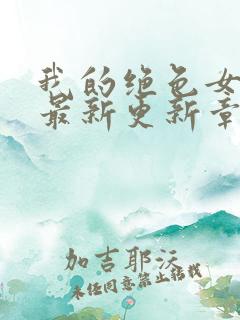 我的绝色女
最新更新章
加吉耶沃
未经同意禁止转载